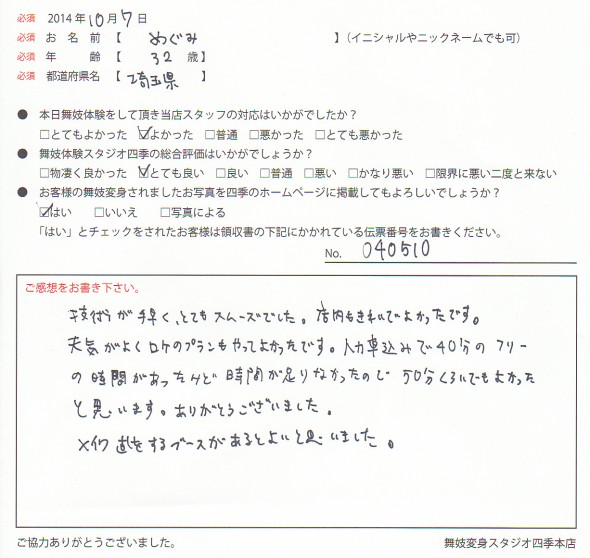 必須 2014 年 10 月 7 日
必須 お 名 前 【 めぐみ 】(イニシャルやニックネームでも可)
必須 年 齢 【 32 歳】
必須 都道府県名 【 埼玉県 】
● 本日舞妓体験をして頂き当店スタッフの対応はいかがでしたか?
□とてもよかった ☑よかった □普通 □悪かった □とても悪かった
● 舞妓体験スタジオ四季の総合評価はいかがでしょうか?
□物凄く良かった ☑とても良い □良い □普通 □悪い □かなり悪い □限界に悪い二度と来ない
● お客様の舞妓変身されましたお写真を四季のホームページに掲載してもよろしいでしょうか?
☑はい □いいえ □写真による
「はい」とチェックをされたお客様は領収書の下記にかかれている伝票番号をお書きください。
No. 040510
ご感想をお書き下さい。
支度が早く、とてもスムーズでした。店内もきれいでよかったです。
天気がよくロケのプランもやってよかったです。人力車込みで40分のフリー
の時間があったけど時間が足りなかったので50分くらいでもよかった
と思います。ありがとうございました。
メイク直をするブースがあるとよいと思いました。
ご協力ありがとうございました。
舞妓変身スタジオ四季本店